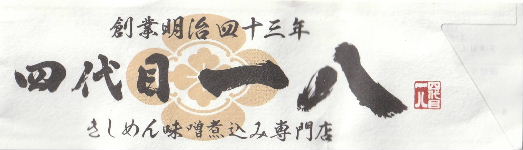 創業明治四十三年
四代目一八
きしめん味噌煮込み専門店
四代目
一八